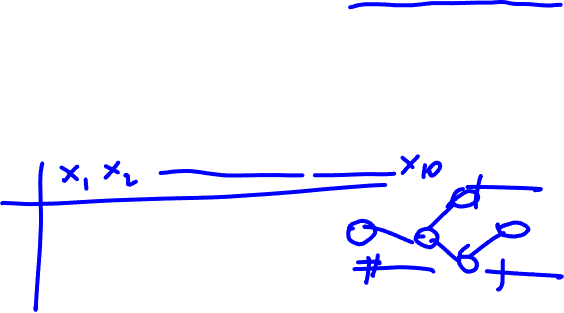 x₁ x₂ ———— x₁₀